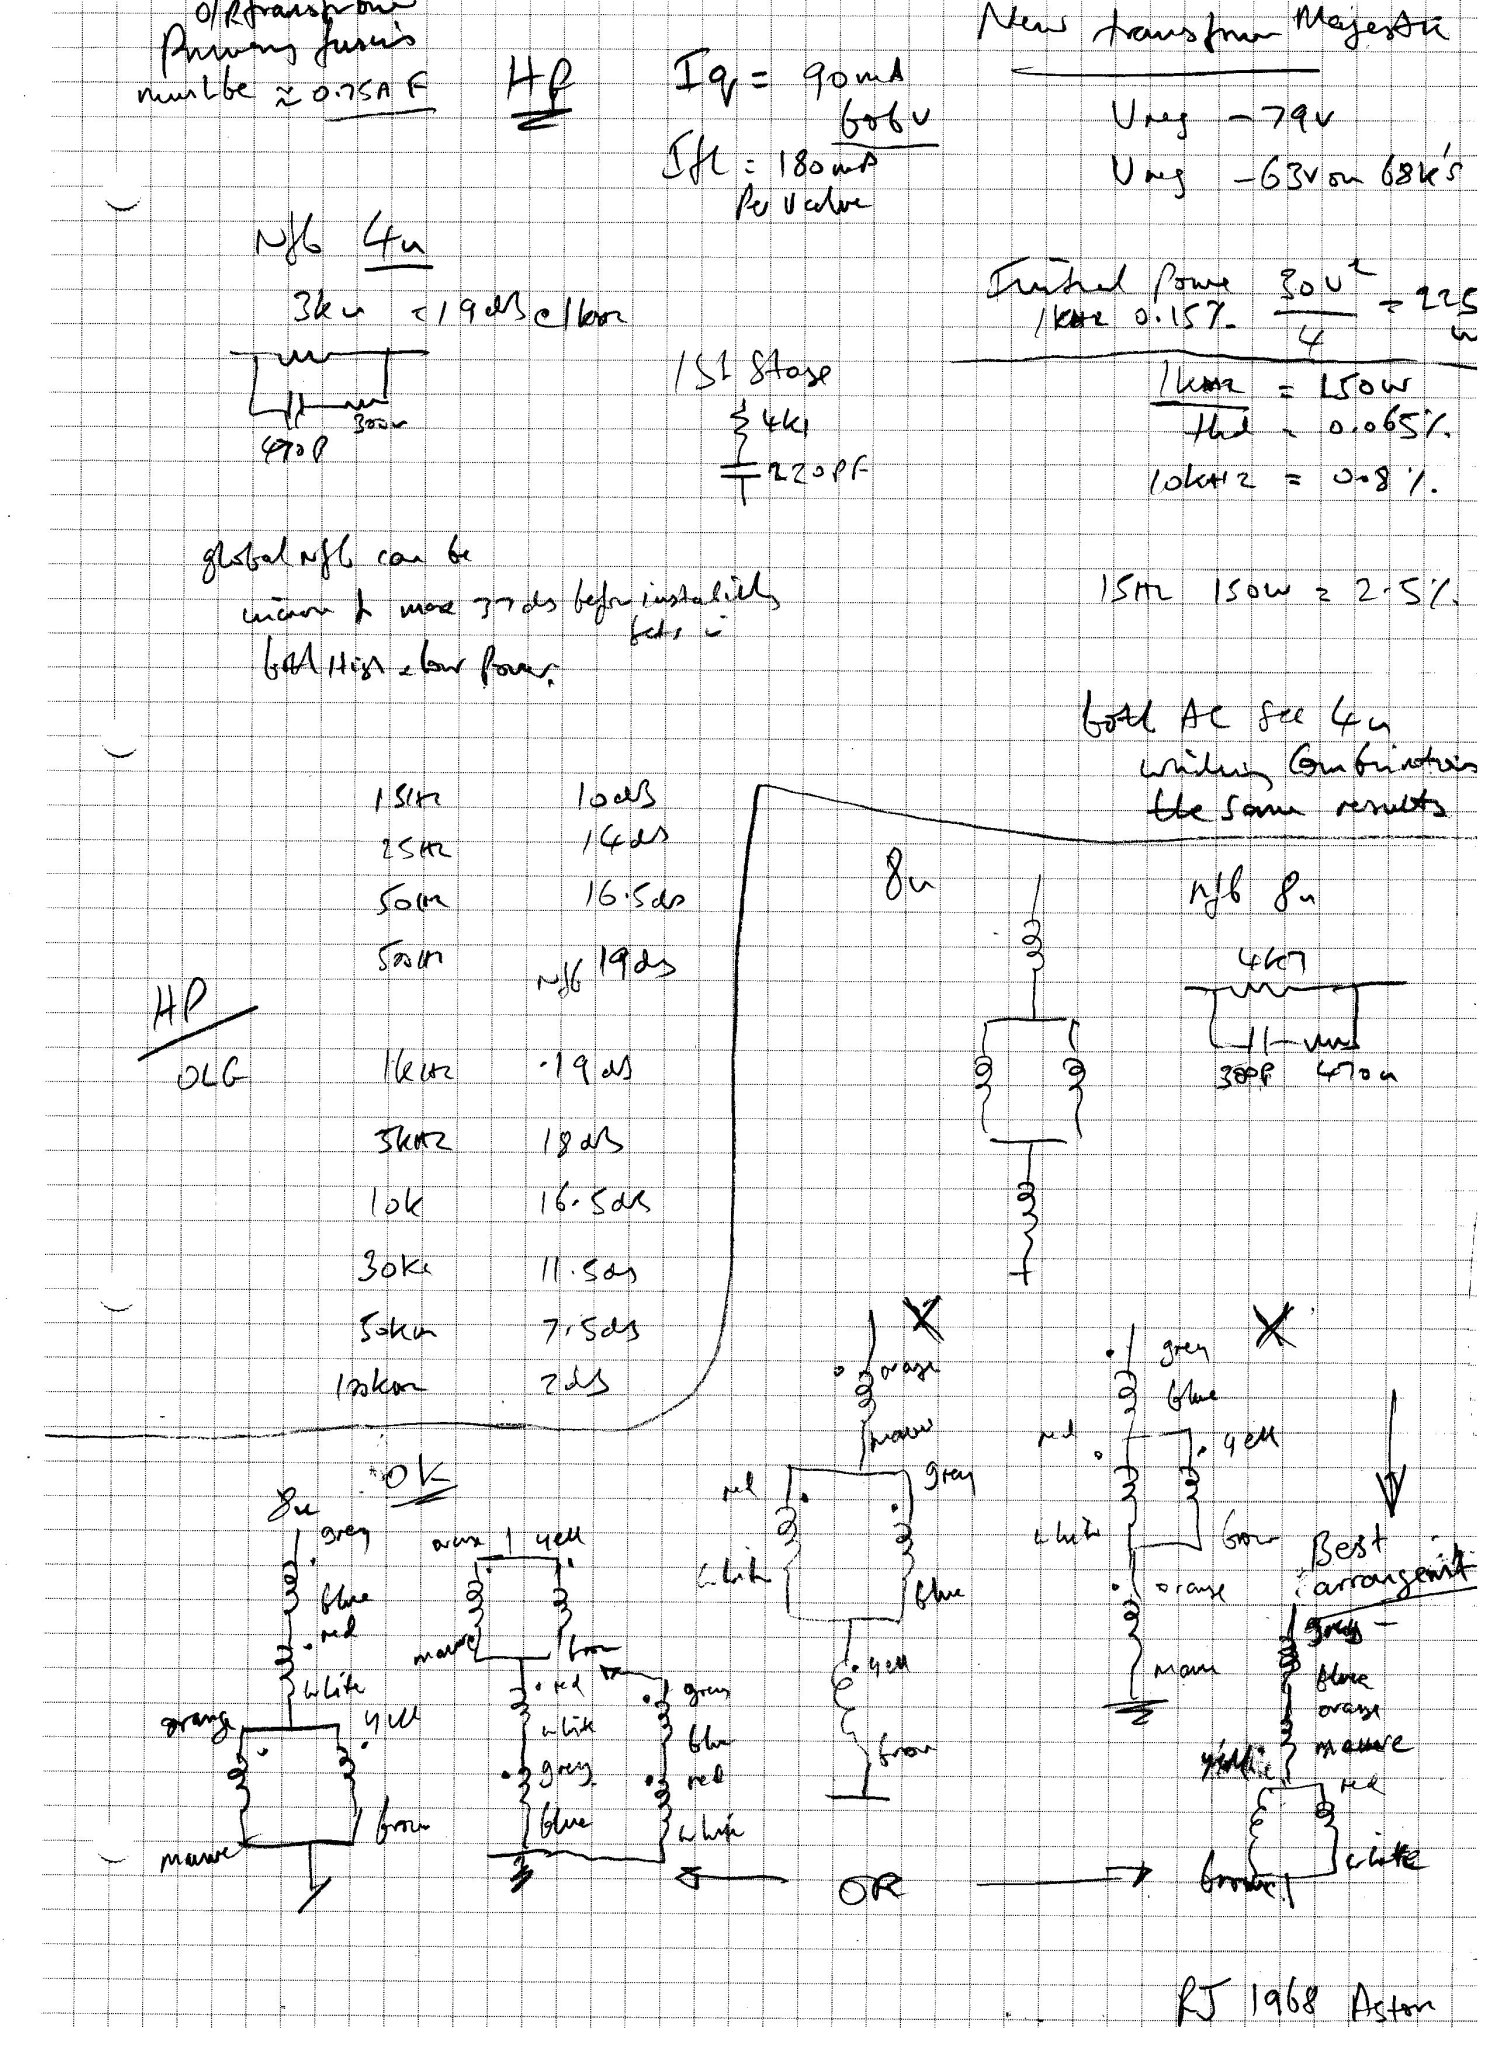 O/P transformer
Primary fusing
must be ≈ 0.75A F
HP
Iq = 90mA
606v
Ifl = 180mA
Per Valve
New transformer Majestic
Vneg -79v
Vneg -63v on 68k's
Nfb 4Ω
3kΩ = 19dB @ 1kHz
300Ω
470P
1st Stage
4k1
220PF
Initial Power 30v² / 4 = 225w
1kHz 0.15%
1kHz = 150w
thd = 0.065%
10kHz = 0.8%
global Nfb can be
max 37dB before instability
sets in
both High & low Power.
15Hz 150w = 2.5%
both AC see 4Ω
winding Combinations
the same results
HP
OLG
15Hz 10dB
25Hz 14dB
50Hz 16.5dB
500Hz Nfb 19dB
1kHz 19dB
5kHz 18dB
10k 16.5dB
30kHz 11.5dB
50kHz 7.5dB
100kHz 2dB
8Ω
Nfb 8Ω
4k7
300P 470Ω
OK
8Ω
grey
blue
red
white
orange yell
mauve brown
orange yell
mauve brown
red
white
grey
blue
grey
blue
red
white
X
orange
mauve
red grey
white blue
yell
brown
X
grey
blue
red yell
white brown
orange
mauve
Best
arrangement
grey
blue
orange
mauve
red
brown white
OR
RJ 1968 Aston